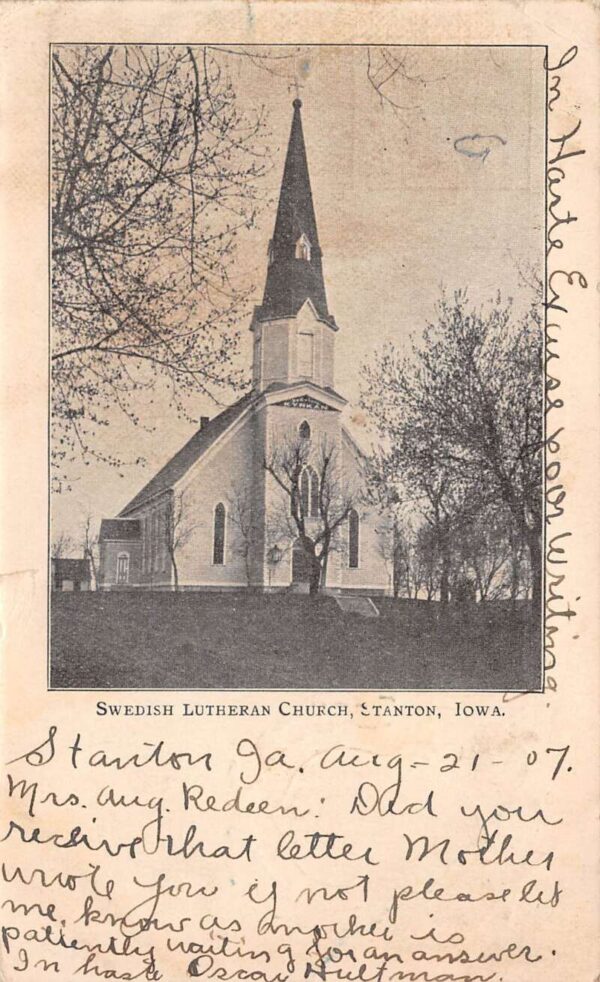 SWEDISH LUTHERAN CHURCH, STANTON, IOWA.
Stanton Ia. Aug - 21 - 07.
Mrs. Aug. Redeen: Did you
receive that letter Mother
wrote you if not please let
me know as mother is
patiently waiting for an answer.
In haste Oscar Hultman.
In Haste Excuse poor Writing.